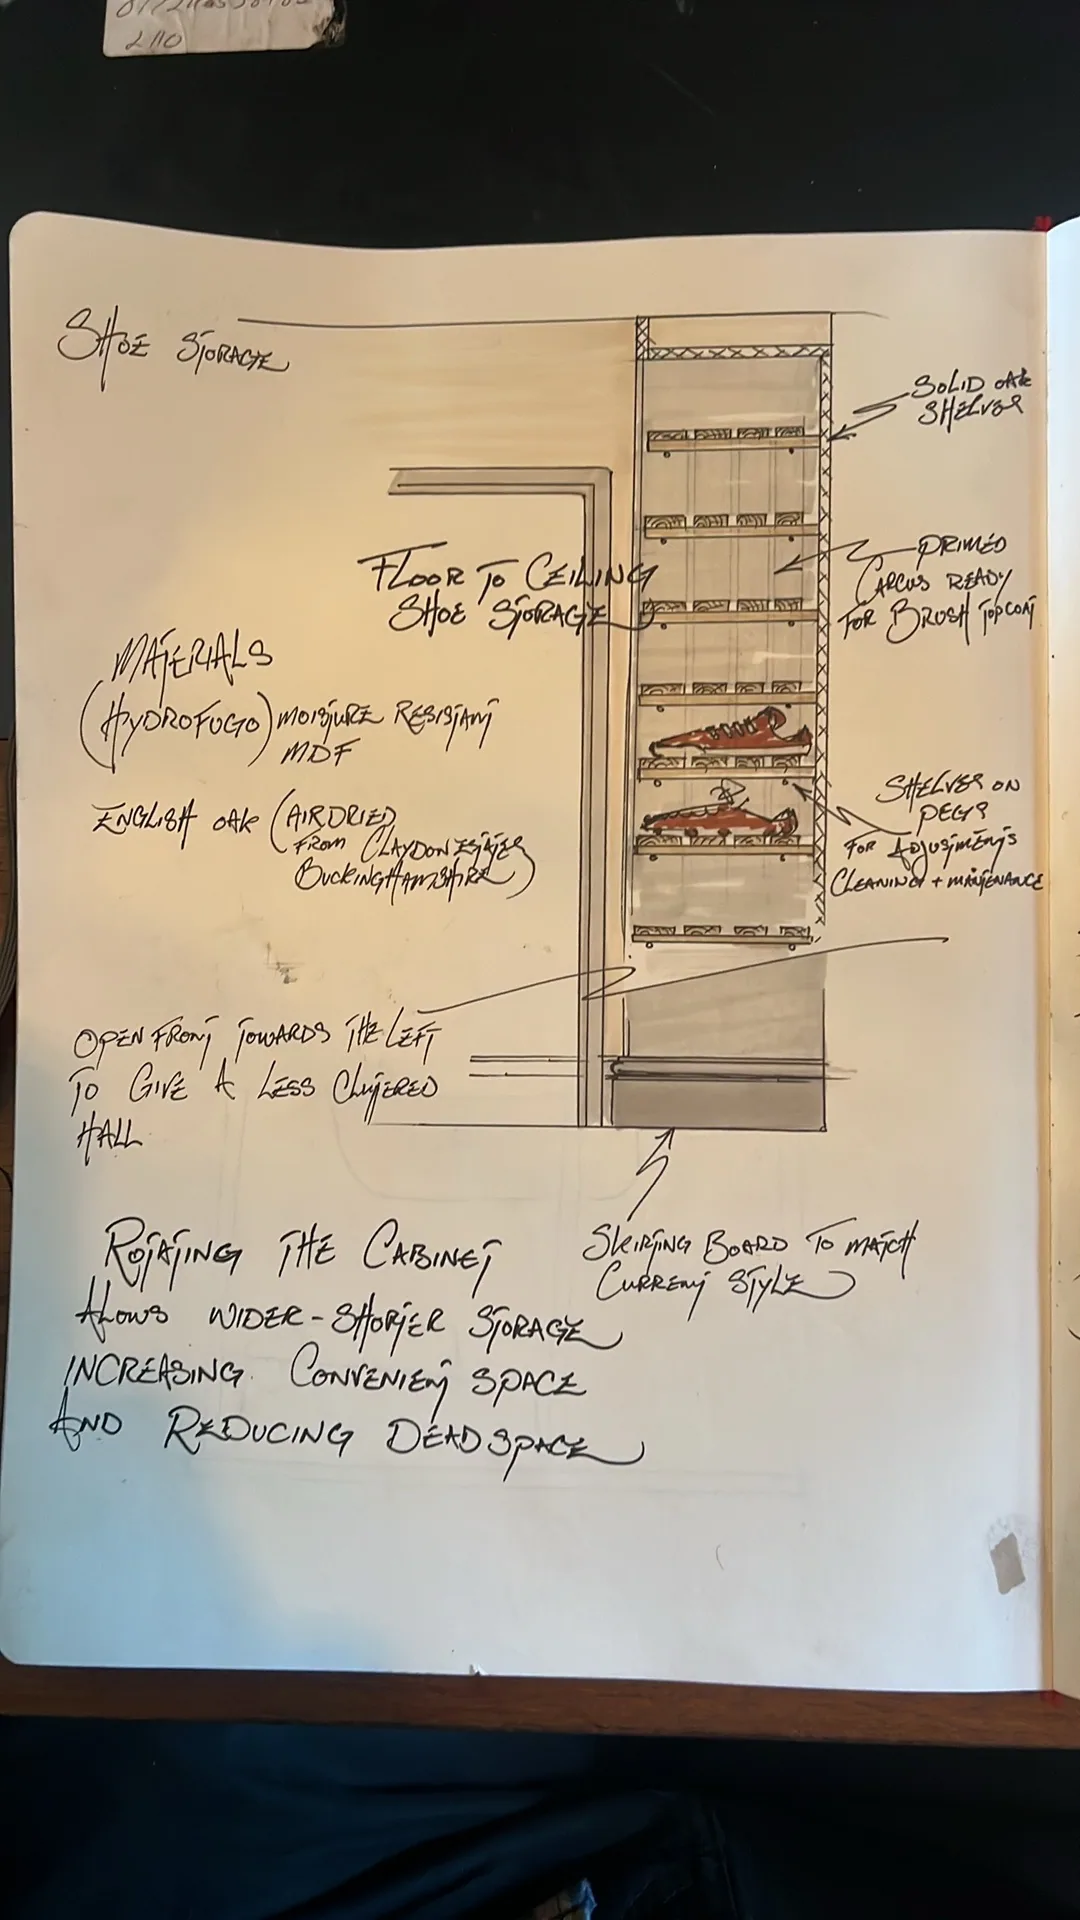 2110
SHOE STORAGE
SOLID OAK
SHELVES
PRIMED
CARCUS READY
FOR BRUSH TOPCOAT
FLOOR TO CEILING
SHOE STORAGE
MATERIALS
(HYDROFUGO) MOISTURE RESISTANT
MDF
ENGLISH OAK (AIR DRIED
FROM CLAYDON ESTATES
BUCKINGHAMSHIRE)
SHELVES ON
PEGS
FOR ADJUSTMENTS
CLEANING + MAINTENANCE
OPEN FRONT TOWARDS THE LEFT
TO GIVE A LESS CLUTTERED
HALL
ROTATING THE CABINET
ALOWS WIDER-SHORTER STORAGE
INCREASING CONVENIENT SPACE
AND REDUCING DEAD SPACE
SKIRTING BOARD TO MATCH
CURRENT STYLE